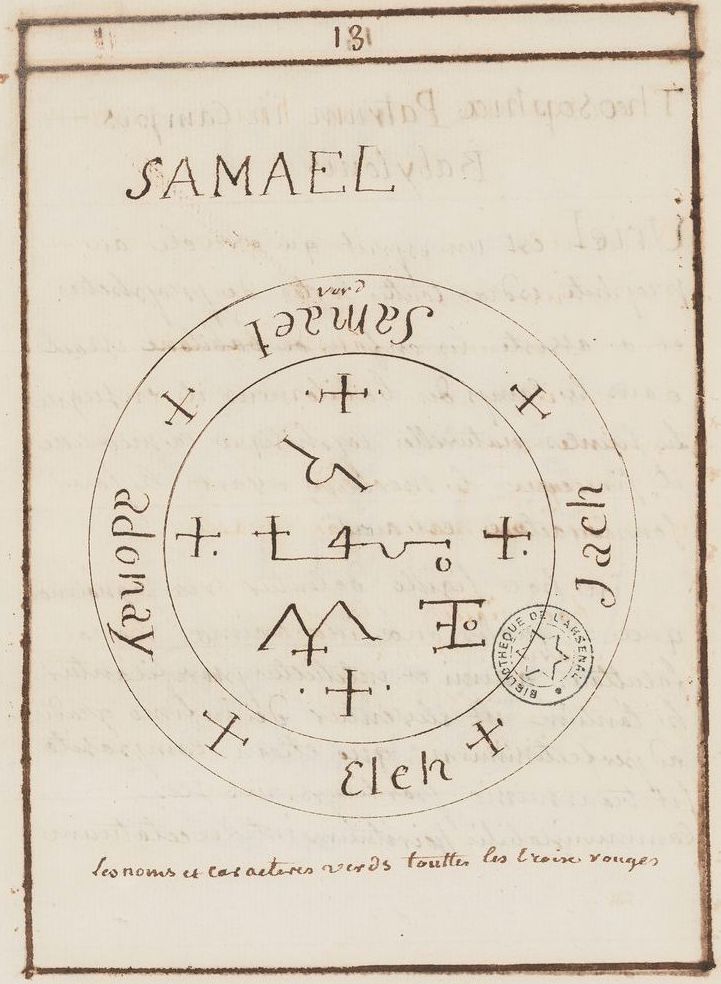 131
SAMAEL
verd
Samael
adonay
Jach
Eleh
BIBLIOTHEQUE DE L'ARSENAL
les noms et caracteres verds touttes les Croix rouges